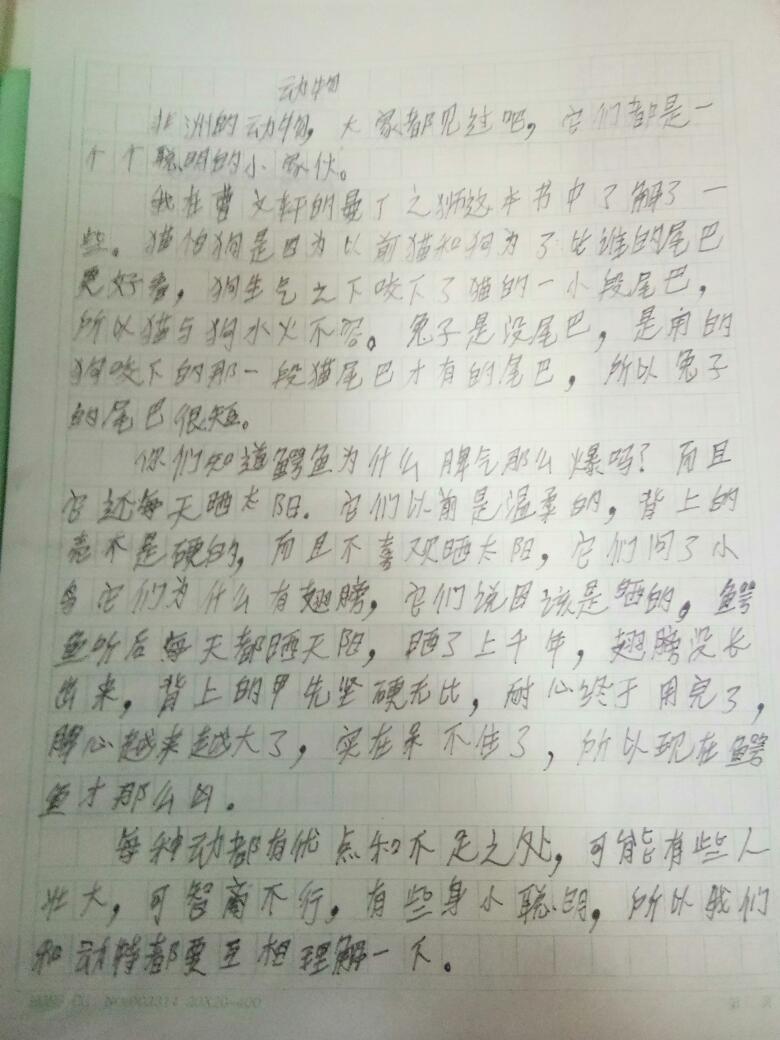 动物
非洲的动物,大家都见过吧,它们都是一
个个聪明的小家伙。
我在曹文轩的最了之狮这本书中了解了一
些。猫怕狗是因为以前猫和狗为了比谁的尾巴
更好看,狗生气之下咬下了猫的一小段尾巴,
所以猫与狗水火不容。兔子是没尾巴,是用的
狗咬下的那一段猫尾巴才有的尾巴,所以兔子
的尾巴很短。
你们知道鳄鱼为什么脾气那么爆吗?而且
它还每天晒太阳.它们以前是温柔的,背上的
壳不是硬的,而且不喜欢晒太阳,它们问了小
鸟它们为什么有翅膀,它们说因该是晒的,鳄
鱼听后每天都晒天阳,晒了上千年,翅膀没长
出来,背上的甲先坚硬无比,耐心终于用完了,
脾心越来越大了,实在呆不住了,所以现在鳄
鱼才那么凶。
每种动都有优点和不足之处,可能有些人
壮大,可智商不行,有些身小聪明,所以我们
和动特都要互相理解一下。